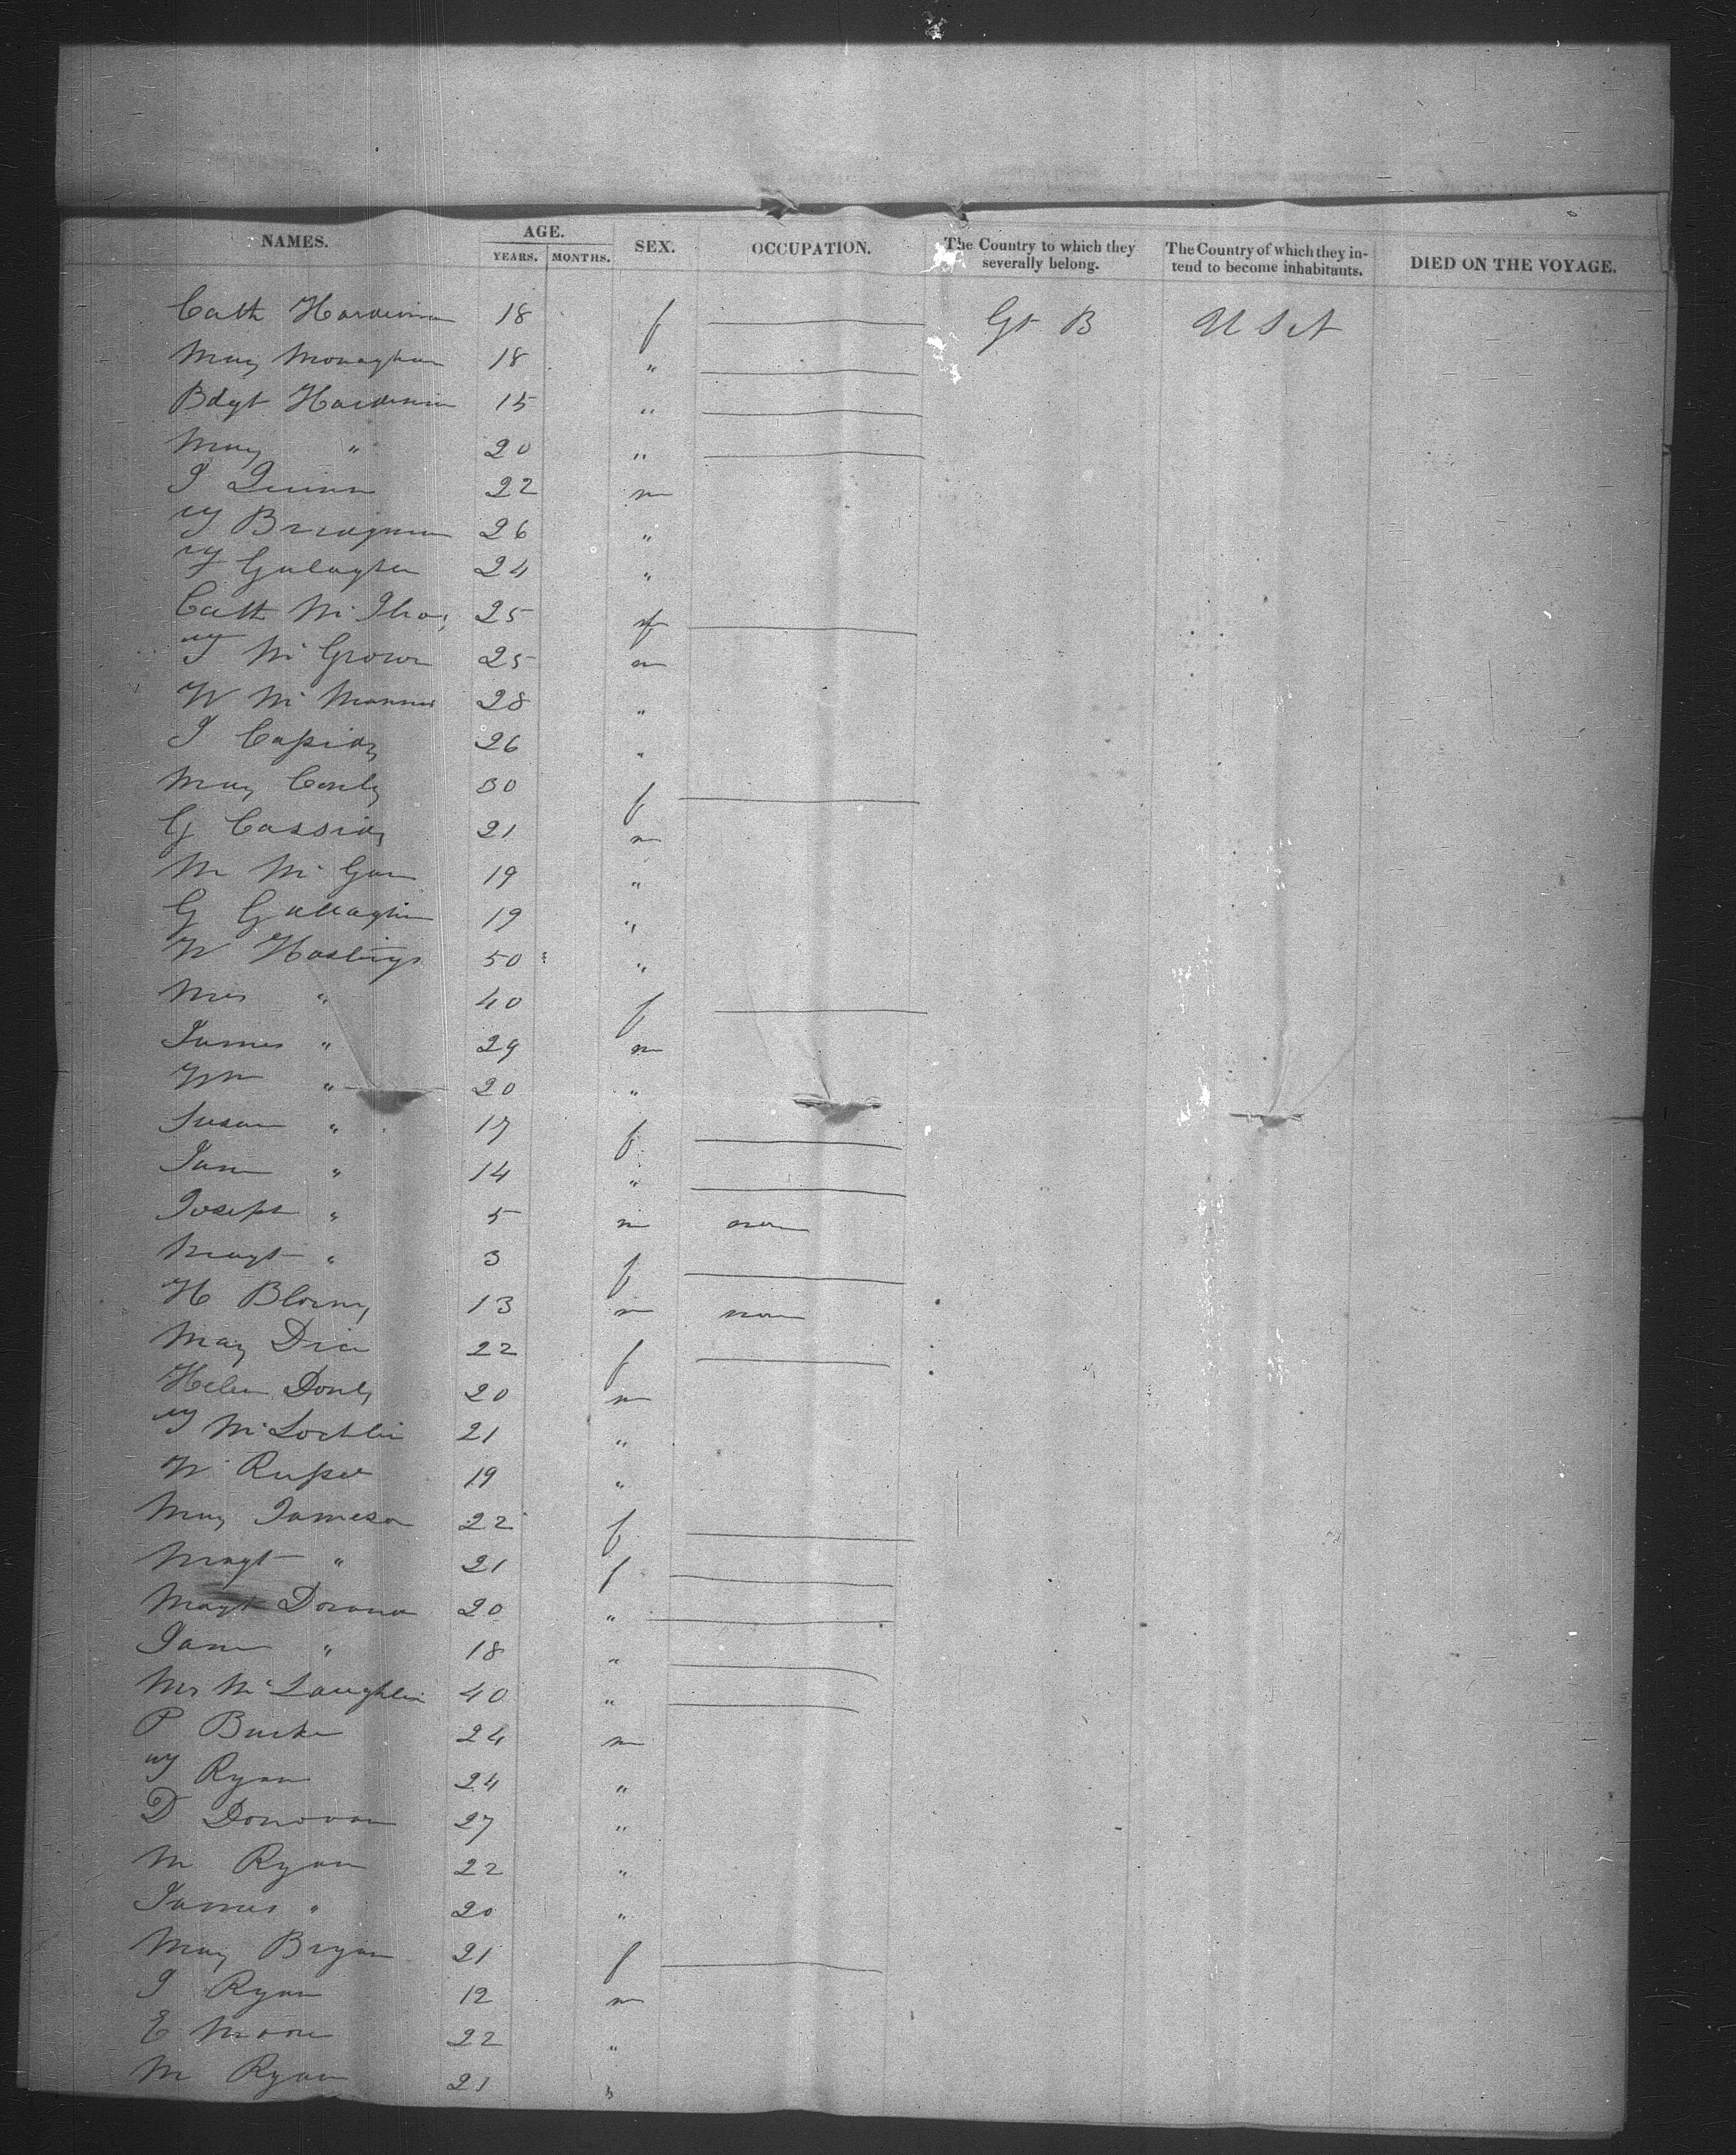 NAMES. AGE. YEARS. MONTHS. SEX. OCCUPATION. The Country to which they severally belong. The Country of which they intend to become inhabitants. DIED ON THE VOYAGE.
Cath 18 f Gt B U S A
Mary Monaghan 18 "
Bdgt 15 "
Mary " 20 "
J Quinn 22 m
T Bridgman 26 "
T Galagher 24 "
Cath Mc 25 f
T McGrown 25 m
W McMannus 28 "
J Cassidy 26 "
Mary Conly 30 f
G Cassidy 21 m
M McGan 19 "
G Gallagher 19 "
W Hastings 50 "
Mrs " 40 f
James " 29 m
Wm " 20 "
Susan " 17 f
Jane " 14 "
Joseph " 5 m non
Magt " 3 f
H 13 m non
Mary 22 f
Helen Donly 20 m
T McLochlin 21 "
W Russel 19 "
Mary Jameson 22 f
Magt " 21 f
Magt 20 "
Jane " 18 "
Mrs McLaughlin 40 "
P Burke 24 m
T Ryan 24 "
D Donovan 27 "
M Ryan 22 "
James " 20 "
Mary Bryan 21 f
J Ryan 12 m
E Moore 22 "
M Ryan 21 "